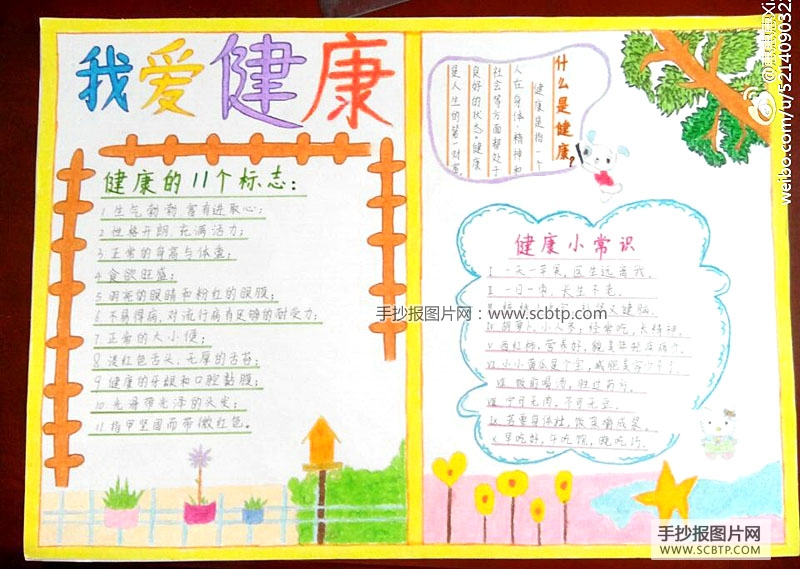 我爱健康
健康的11个标志：
1.生气勃勃,富有进取心；
2.性格开朗,充满活力；
3.正常的身高与体重；
4.食欲旺盛；
5.明亮的眼睛和粉红的眼膜；
6.不易得病,对流行病有足够的耐受力；
7.正常的大小便；
8.淡红色舌头,无厚的舌苔；
9.健康的牙龈和口腔黏膜；
10.光滑带光泽的头发；
11.指甲坚固而带微红色。
什么是健康?
健康是指一个
人在身体、精神和
社会等方面都处于
良好的状态。健康
是人生的第一财富。
健康小常识
Ⅰ 一天一苹果,医生远离我。
Ⅱ 一日一枣,长生不老。
健脑。
手抄报图片网：www.scbtp.com
Ⅳ 胡萝卜,小人参；经常吃,长精神。
Ⅴ 西红柿,营养好,貌美年轻疾病少。
Ⅵ 小小黄瓜是个宝,减肥美容少不了。
Ⅶ 饭前喝汤,胜过药方。
Ⅷ 宁可无肉,不可无豆。
Ⅸ 若要身体壮,饭菜嚼成浆。
Ⅹ 早吃好,午吃饱,晚吃巧。
weibo.com/u/521409032
手抄报图片网
WWW.SCBTP.COM